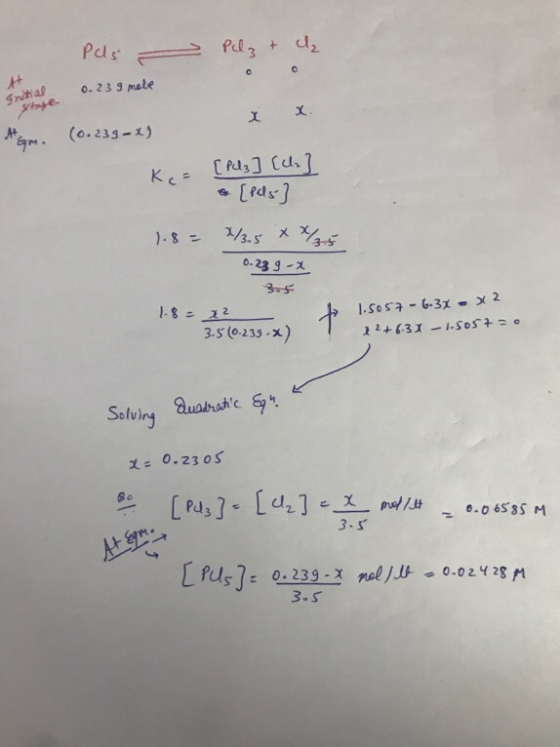 PCl5 ⇌ PCl3 + Cl2
At Initial stage 0.239 mole 0 0
At Eqm. (0.239-x) x x
Kc = [PCl3] [Cl2] / [PCl5]
1.8 = x/3.5 × x/3.5 / 0.239-x / 3.5
1.8 = x2 / 3.5(0.239-x) → 1.5057 - 6.3x = x2
x2 + 6.3x - 1.5057 = 0
Solving Quadratic Eqn.
x = 0.2305
So [PCl3] = [Cl2] = x / 3.5 mol/lt = 0.06585 M
At Eqm. →
→ [PCl5] = 0.239-x / 3.5 mol/lt = 0.02428 M